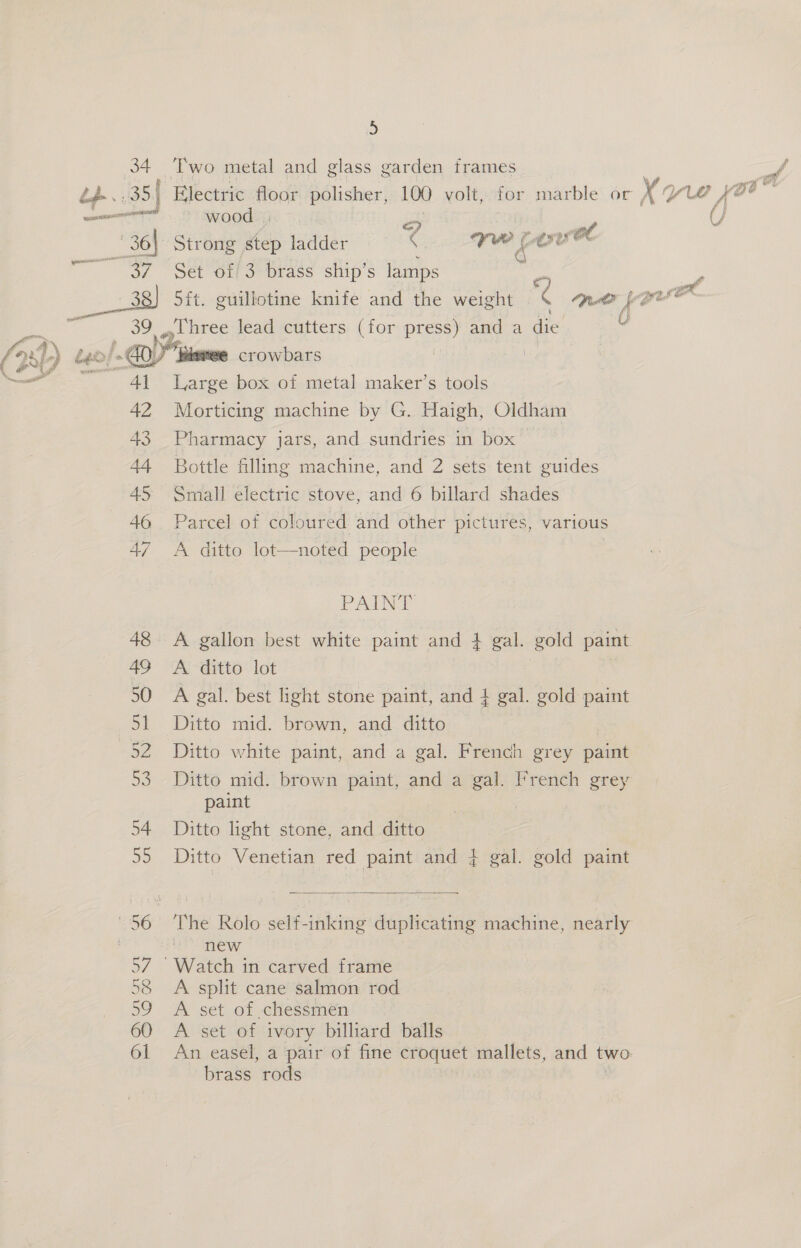 5
34 Two metal and glass garden frames
35 Electric floor polisher, 100 volt, for marble or
wood
36 Strong step ladder
37 Set of 3 brass ship's lamps
38 5ft. guillotine knife and the weight
39 Three lead cutters (for press) and a die
40 crowbars
41 Large box of metal maker's tools
42 Morticing machine by G. Haigh, Oldham
43 Pharmacy jars, and sundries in box
44 Bottle filling machine, and 2 sets tent guides
45 Small electric stove, and 6 billard shades
46 Parcel of coloured and other pictures, various
47 A ditto lot—noted people
PAINT
48 A gallon best white paint and ¼ gal. gold paint
49 A ditto lot
50 A gal. best light stone paint, and ¼ gal. gold paint
51 Ditto mid. brown, and ditto
52 Ditto white paint, and a gal. French grey paint
53 Ditto mid. brown paint, and a gal. French grey
paint
54 Ditto light stone, and ditto
55 Ditto Venetian red paint and ¼ gal. gold paint
56 The Rolo self-inking duplicating machine, nearly
new
57 Watch in carved frame
58 A split cane salmon rod
59 A set of chessmen
60 A set of ivory billiard balls
61 An easel, a pair of fine croquet mallets, and two
brass rods